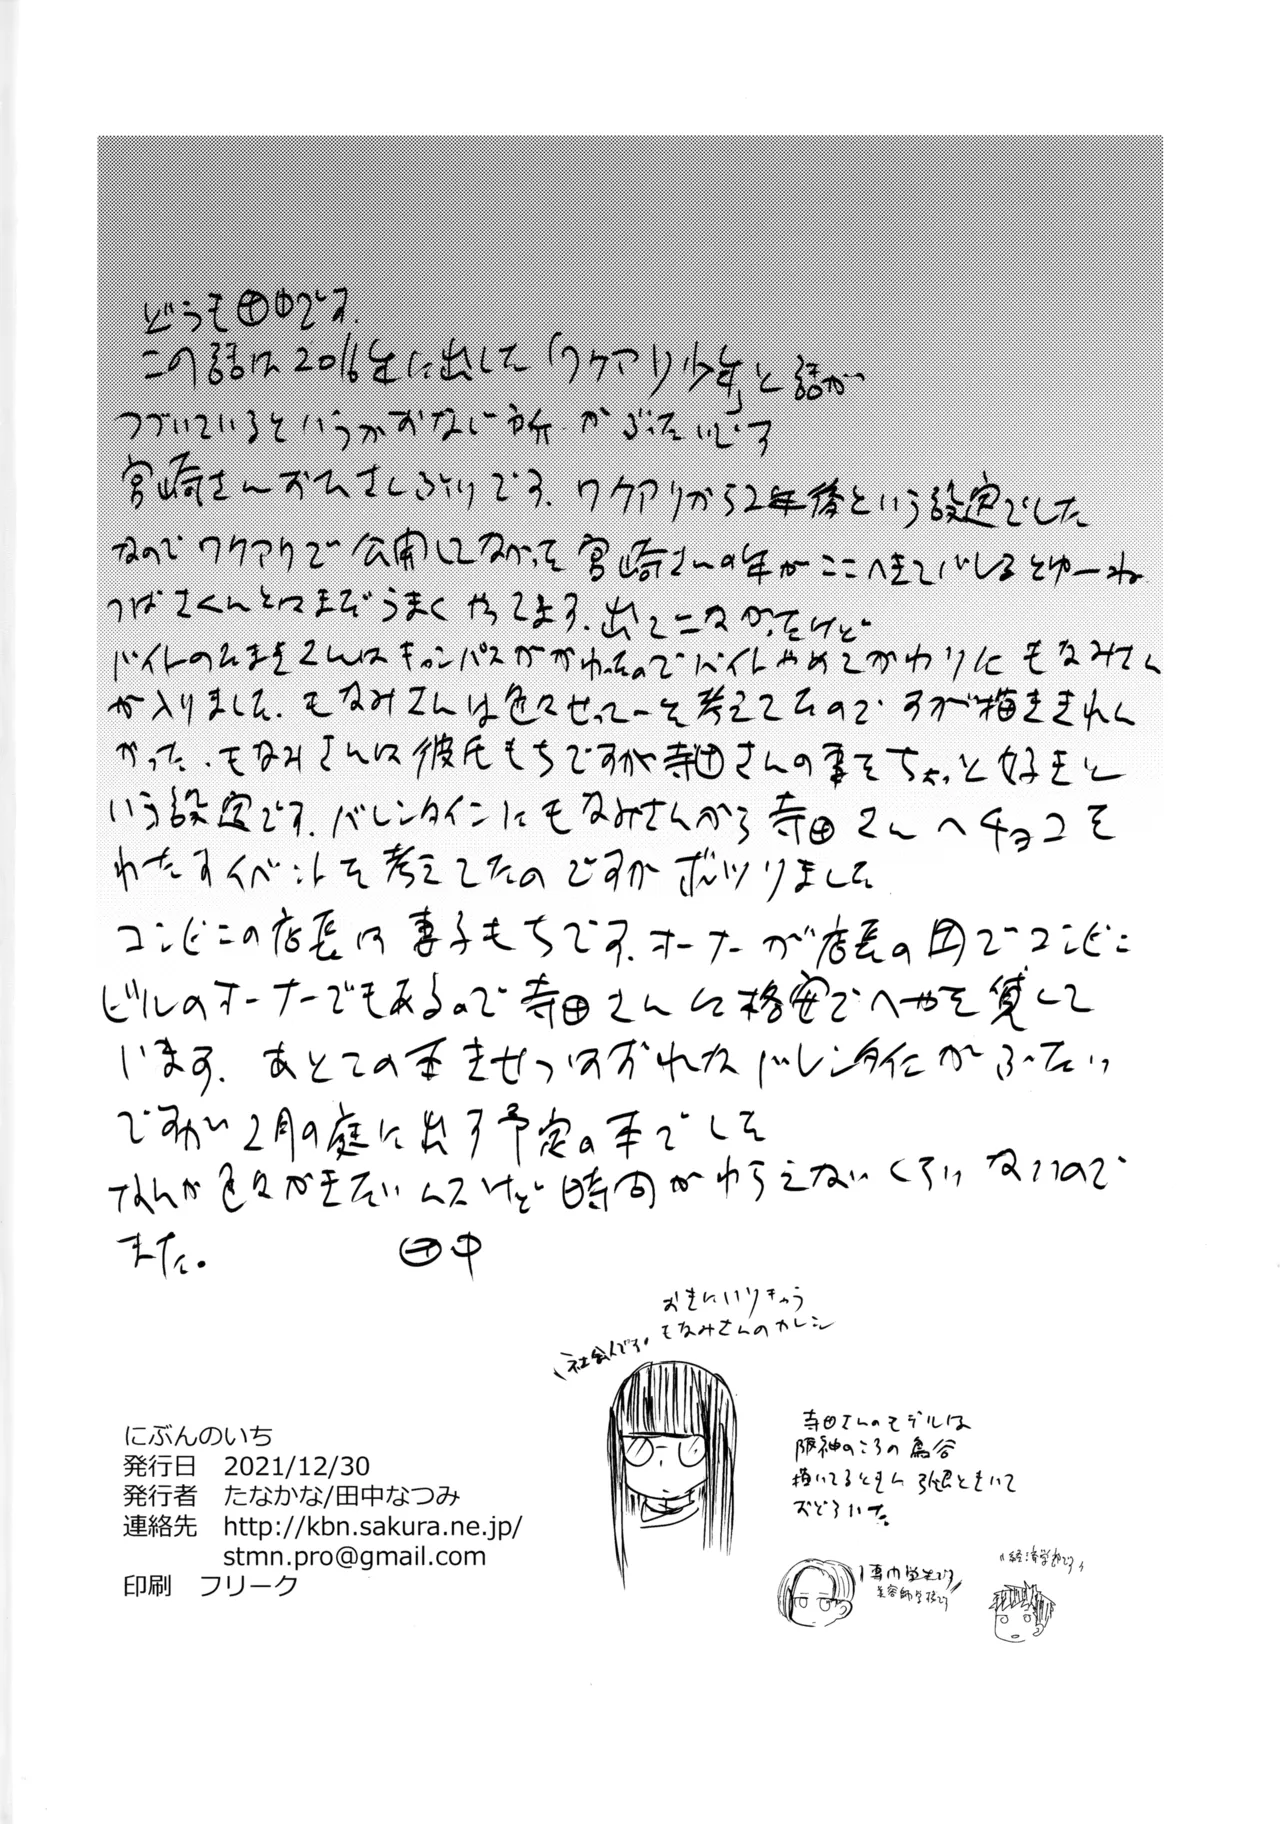 どうも田中です。
この話は2016年に出した「ワケアリ少年」と話が
つづいているというかおなじ所がぶたいです
宮崎さんおひさしぶりです。ワケアリから2年後という設定でした
なのでワケアリで公開してなかった宮崎さんの年がここへきてバレるとゆーね
つばさくんとはまだうまくやってます。出てこなかったけど
バイトのたまきさんはキャンパスがかわったのでバイトやめてかわりにもなみさん
が入りました。もなみさんは色々せってーを考えてたのですが描ききれん
かった。もなみさんは彼氏もちですが寺田さんの事をちょっと好きと
いう設定です。バレンタインにもなみさんから寺田さんへチョコを
わたすイベントを考えてたのですがボツりました
コンビニの店長は妻子もちです。オーナーが店長の
ビルのオーナーでもあるので寺田さんに格安でへやを貸して
います。あとこの本きせつはずれたバレンタインがぶたい
ですが2月の庭に出す予定の本でした
なんか色々かきたいんだけど時間がわらえないくらいないので
また。 田中
おきにいりきゃう
もなみさんのカレシ
社会人です
寺田さんのモデルは
阪神のころの鳥谷
描いてるときに引退ときいて
おどろいた。
専門学生です
美容師学校です
経済学部です
にぶんのいち
発行日 2021/12/30
発行者 たなかな/田中なつみ
連絡先 http://kbn.sakura.ne.jp/
stmn.pro@gmail.com
印刷 フリーク